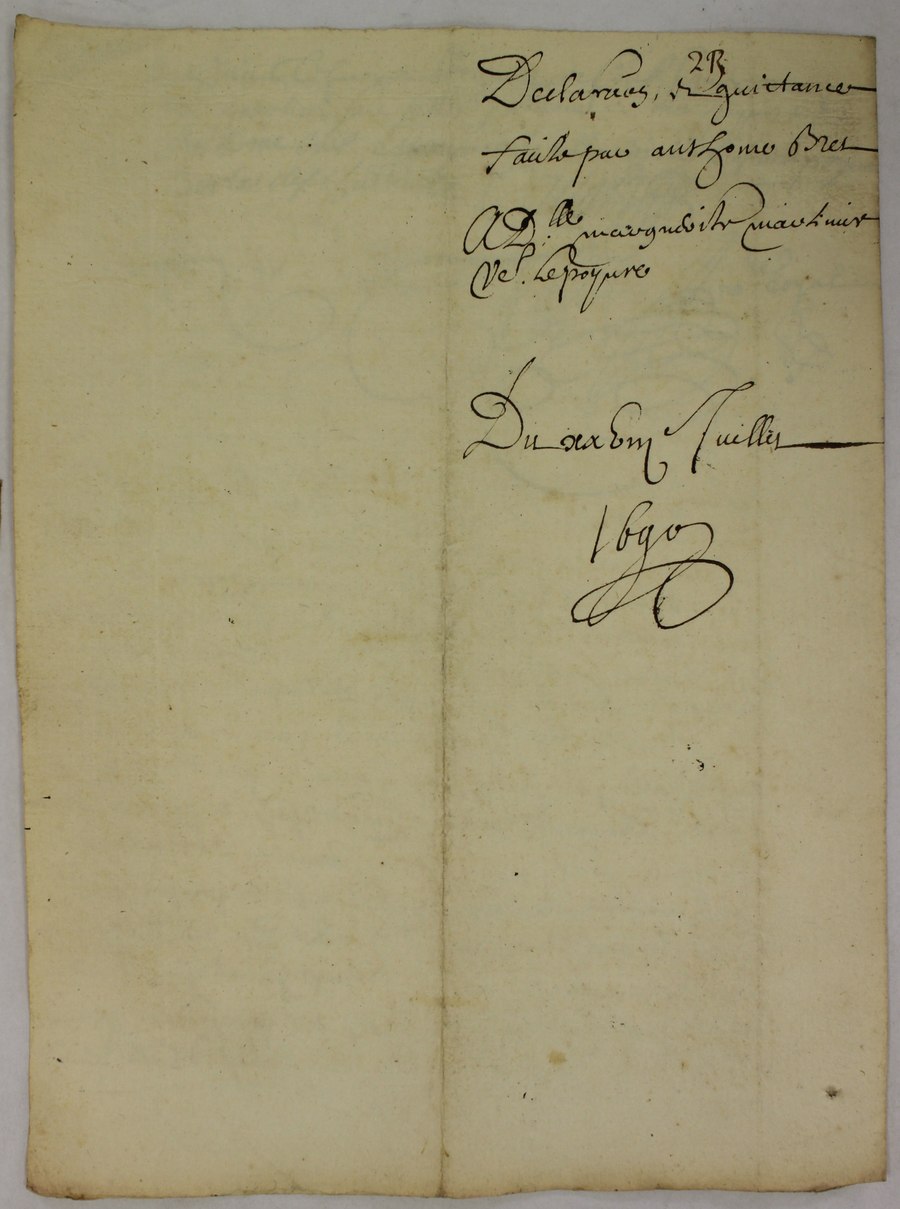 2B
Declara͠on, et quittance
faicte par anthoine Bret
A D.lle marguerite martiniere
Ve.
Du xxvm Juillet
1690